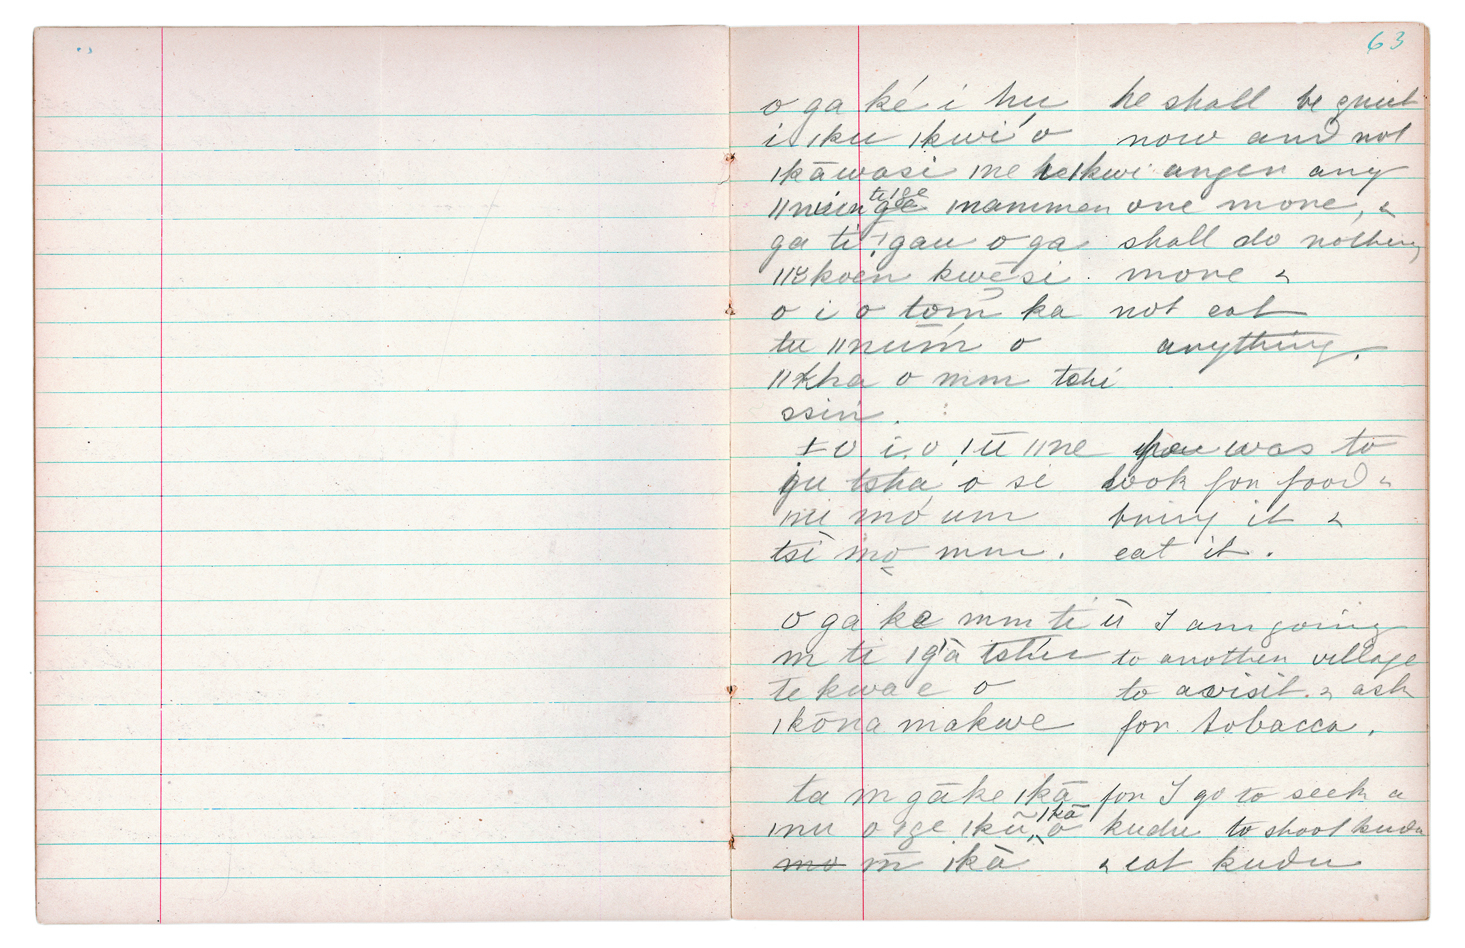 63
o ga ké i hu he shall be quiet
i ıku ıkwi o now and not
ıkāwasi ıne he ıkwi anger any
te ıge
ǁnuin gē ınammen one more, &
ga ti !gau o ga shall do nothing
koen kwēsi more &
o i o tom ka not eat
tu ǁnūm o anything.
ǁkha o mm tshi
ssin.
o i o !ū ǁne you was to
gu tsha o si look for food &
ıni mo um bring it &
tsi mo mm. eat it.
o ga ke mm ti ū I am going
m ti ıgā tshu to another village
te kwa e o to a visit. & ask
ıkōna makwe for tobacco.
ta m gāke ıkā for I go to seek a
ıkā
ınu o ıge ıkū, o kudu to shoot kudu
mo m̄ ıkā & eat kudu